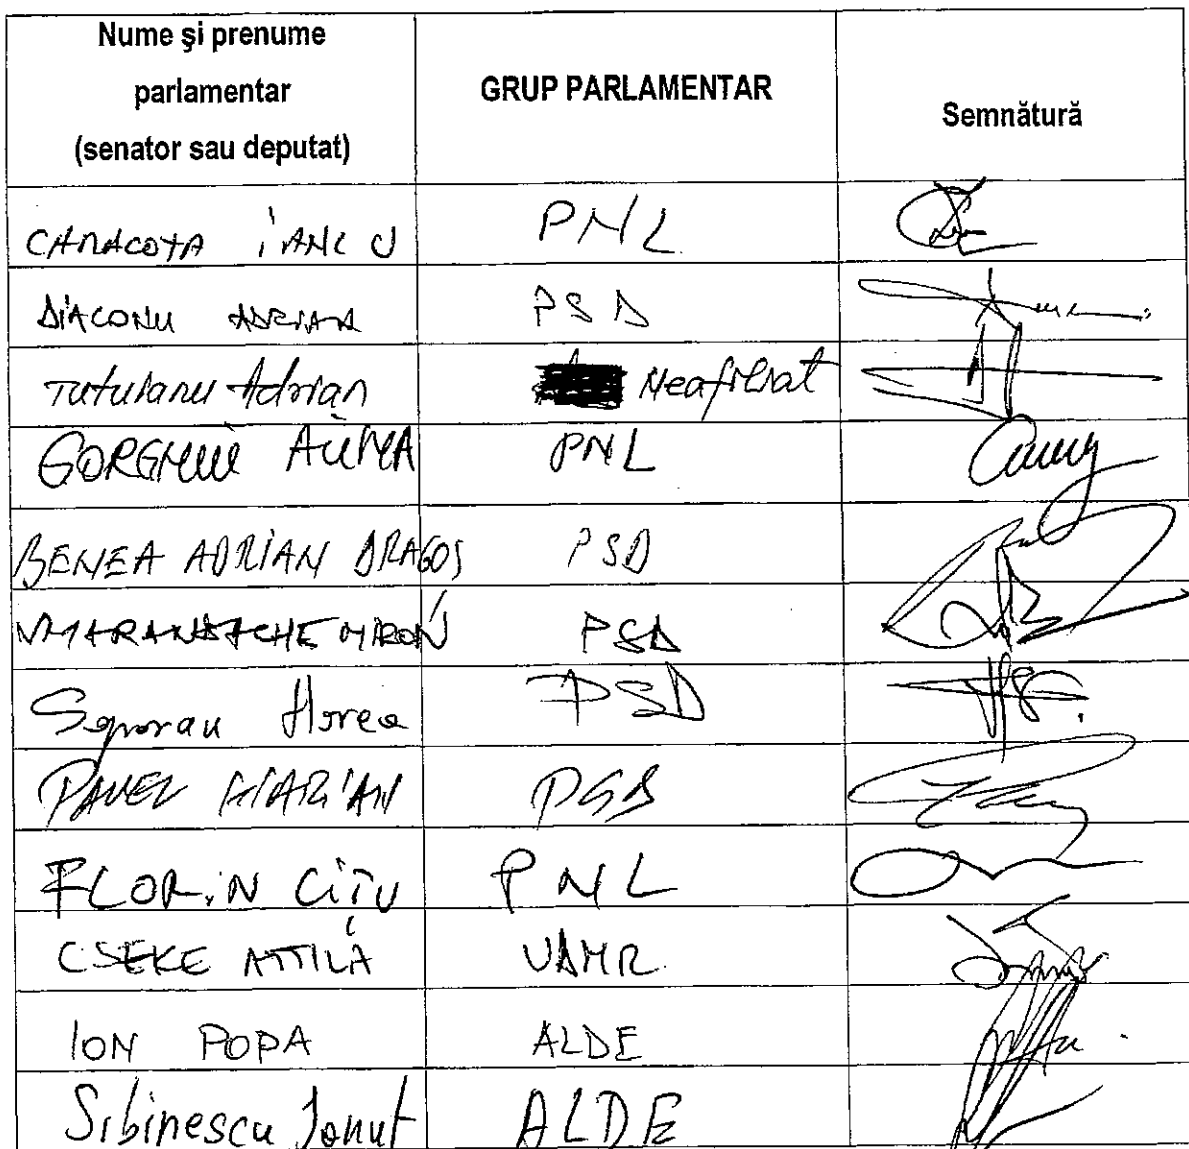 Nume şi prenume
parlamentar
(senator sau deputat)
GRUP PARLAMENTAR
Semnătură
CARACOTA IANCU PNL
DIACONU ADRIAN PSD
Tutuianu Adrian Neafiliat
GORGHIU ALINA PNL
BENEA ADRIAN DRAGOŞ PSD
SMARANDACHE MIRON PSD
Soporan Horea PSD
PAVEL MARIAN PSD
FLORIN CIŢU PNL
CSEKE ATTILA UDMR
ION POPA ALDE
Sibinescu Ionuţ ALDE